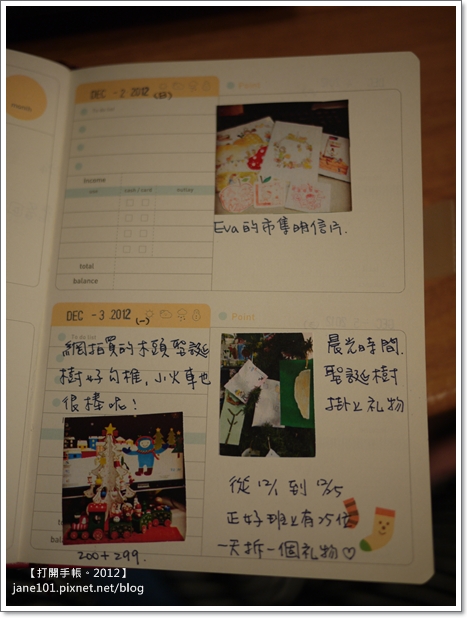 month
DEC - 2 2012 (日)
To do list
income
use cash / card outlay
total
balance
Point
Eva的市集明信片.
DEC - 3 2012 (一)
To do list
網拍買的木頭聖誕
樹好勾椎,小火車也
很棒呢!
200+299.
Point
晨光時間.
聖誕樹
掛上礼物
從12/1 到 12/25
正好班上有25位
一天拆一個礼物♡
【打開手帳。2012】
jane101.pixnet.net/blog